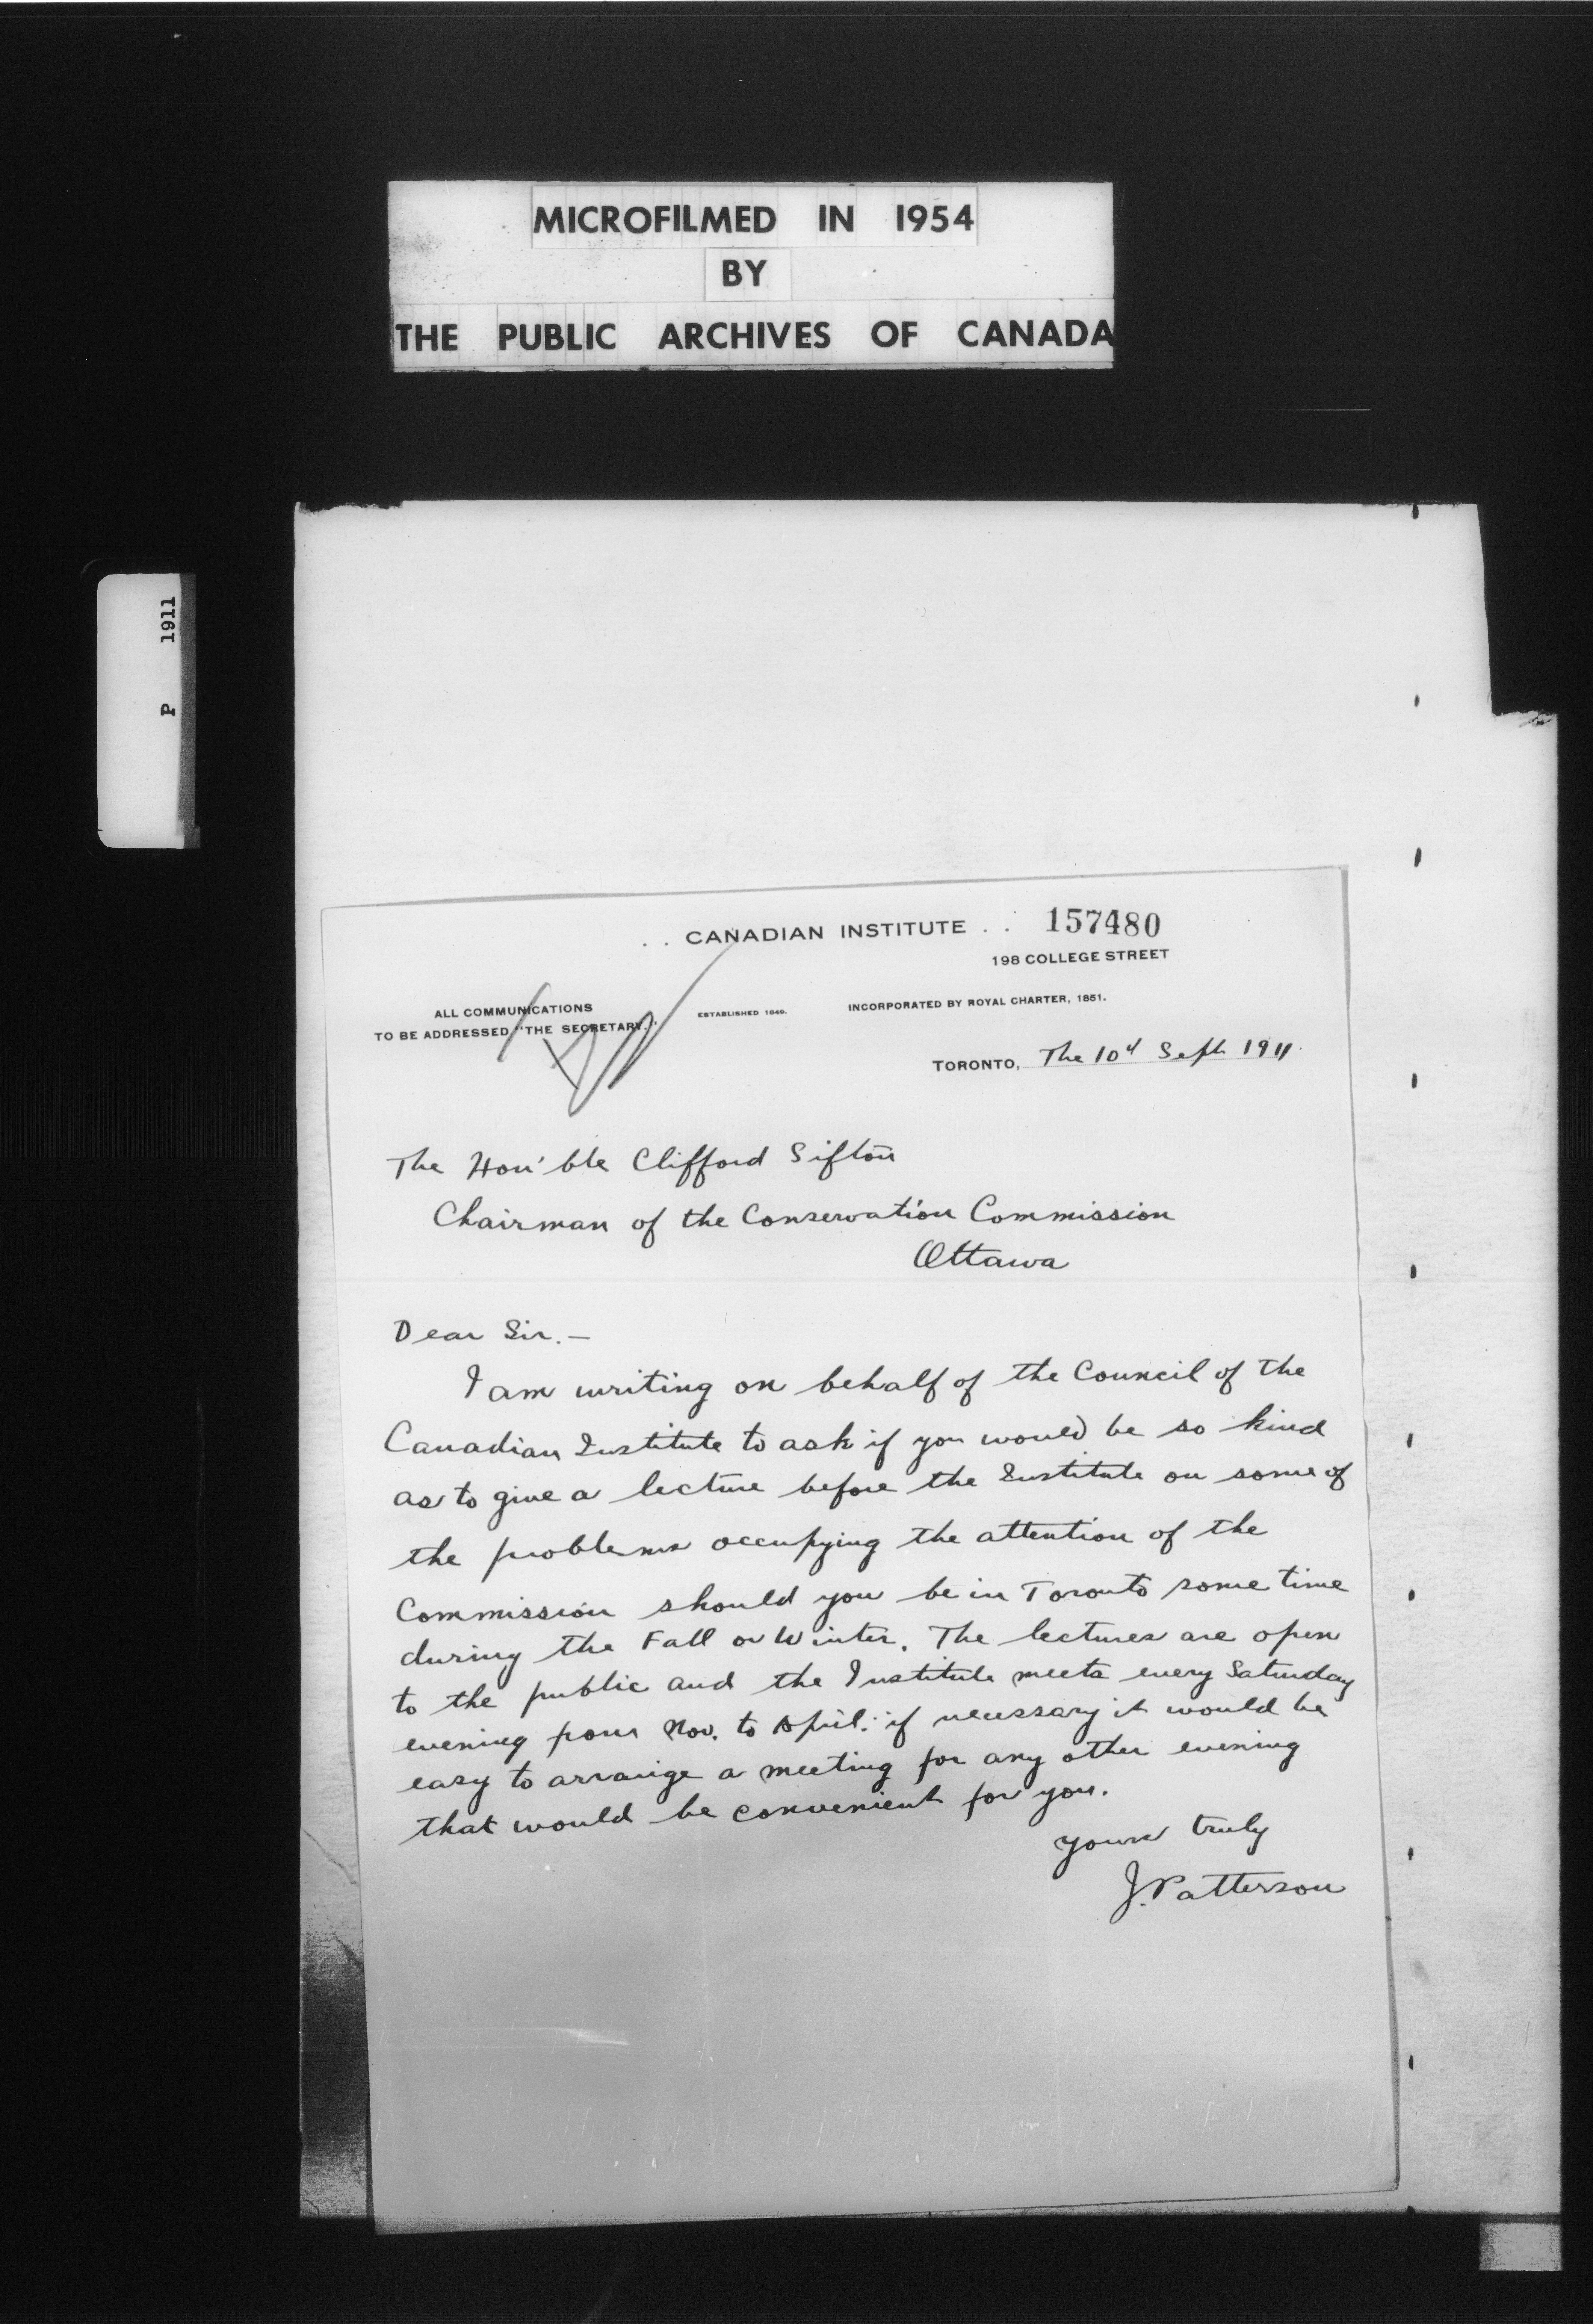 MICROFILMED IN 1954
BY
THE PUBLIC ARCHIVES OF CANADA
P 1911
. . CANADIAN INSTITUTE . . 157480
198 COLLEGE STREET
ALL COMMUNICATIONS
TO BE ADDRESSED "THE SECRETARY."
ESTABLISHED 1849.
INCORPORATED BY ROYAL CHARTER, 1851.
TORONTO, The 10th Sept 1911
The Hon'ble Clifford Sifton
Chairman of the Conservation Commission
Ottawa
Dear Sir. —
I am writing on behalf of the Council of the
Canadian Institute to ask if you would be so kind
as to give a lecture before the Institute on some of
the problems occupying the attention of the
Commission should you be in Toronto some time
during the Fall or Winter. The lectures are open
to the public and the Institute meets every Saturday
evening from Nov. to April: if necessary it would be
easy to arrange a meeting for any other evening
that would be convenient for you.
Yours truly
J. Patterson